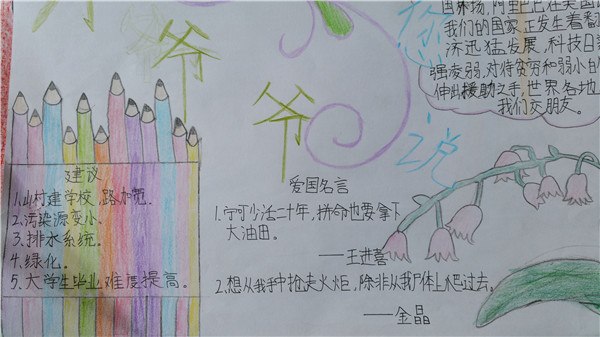 爷
爷
您
说
阿里巴巴在美国
我们的国家正发生着翻
济迅猛发展,科技日
强凌弱,对待贫穷和弱小
伸出援助之手,世界各地
我们交朋友。
建议
1.山村建学校,路加宽.
2.污染源变小.
3.排水系统.
4.绿化。
5.大学生毕业难度提高。
爱国名言
1.宁可少活二十年,拼命也要拿下
大油田。
——王进喜
2.想从我手中抢走火炬,除非从我尸体上爬过去。
——金晶